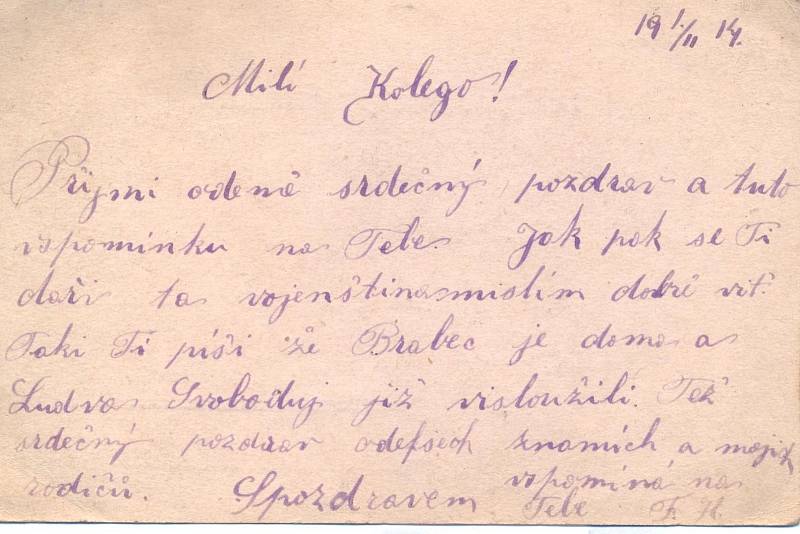 19 1./II 14.
Milí Kolego!
Přijmi odemě srdečný pozdrav a tuto
vspomínku na Tebe. Jak pak se Ti
daří ta vojenština mislím dobrě viť.
Taki Ti píši že Brabec je doma a
Ludva Svoboduj již visloužili. Též
srdečný pozdrav odefsech znamích a mojich
rodičů. Spozdravem vspomíná na
Tebe F. H.